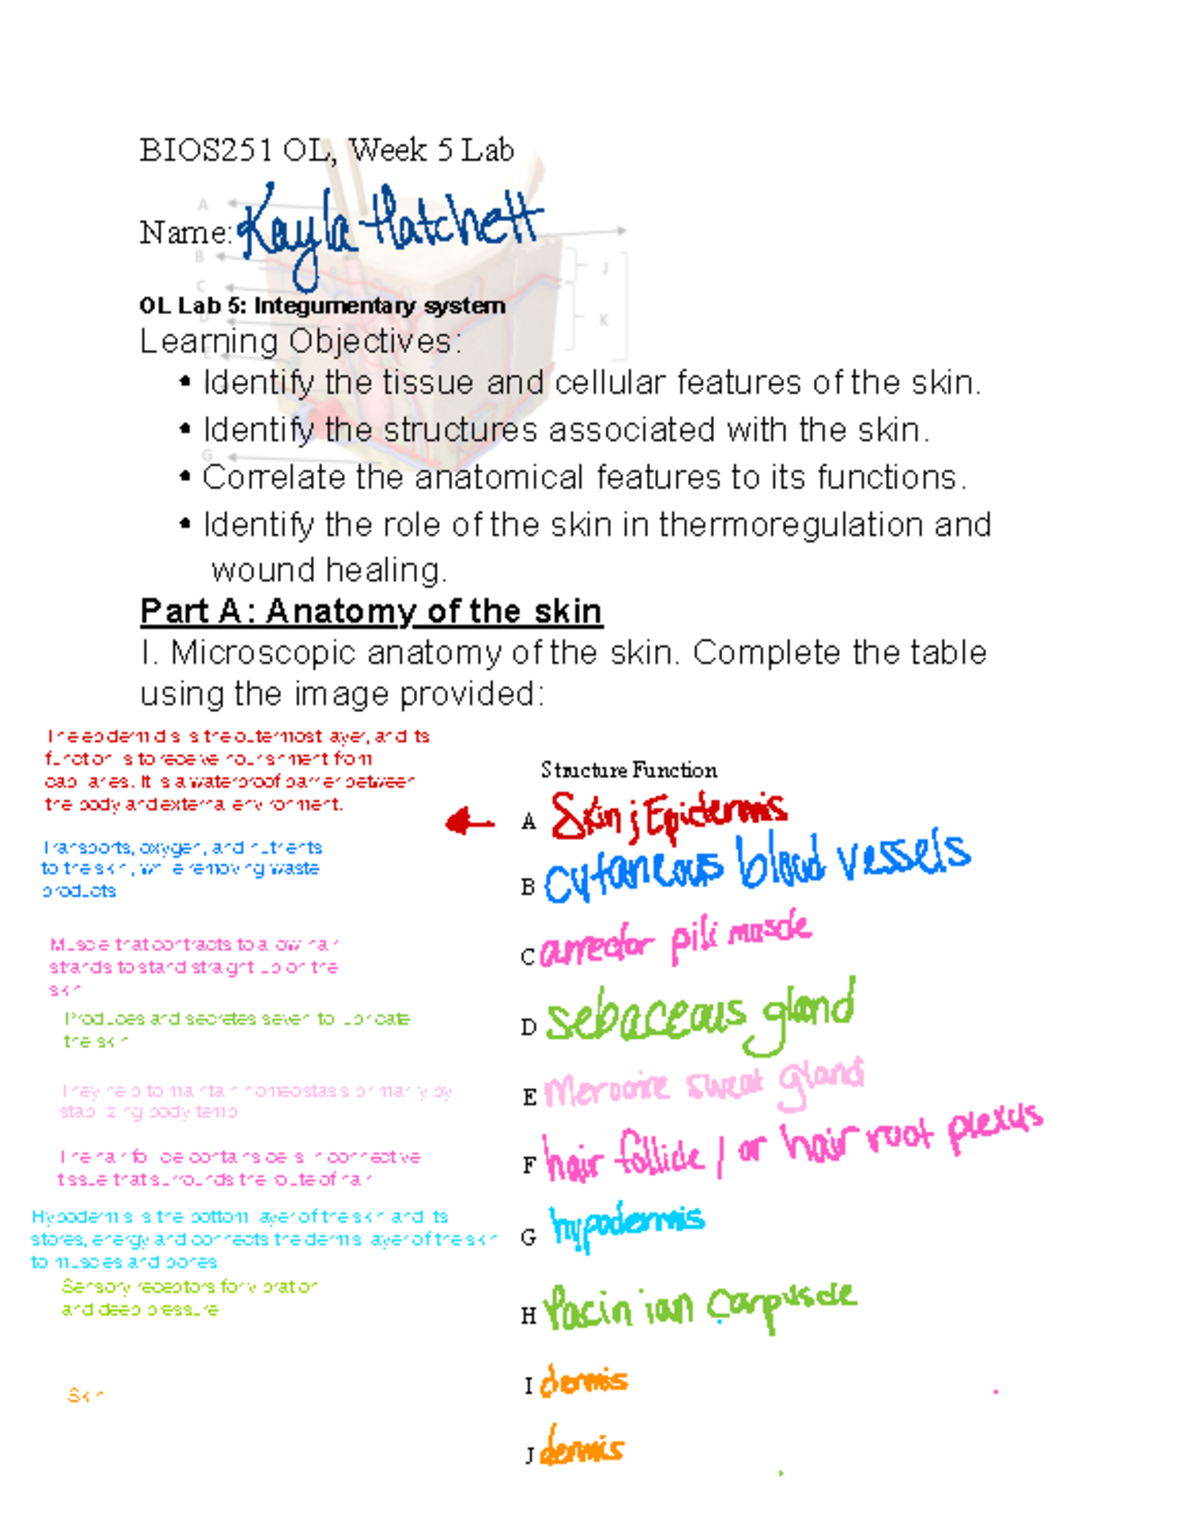 BIOS251 OL, Week 5 Lab
A
Name: Kayla Hatchett
B
J
C
OL Lab 5: Integumentary system
K
Learning Objectives:
• Identify the tissue and cellular features of the skin.
• Identify the structures associated with the skin.
G
• Correlate the anatomical features to its functions.
• Identify the role of the skin in thermoregulation and
wound healing.
Part A: Anatomy of the skin
I. Microscopic anatomy of the skin. Complete the table
using the image provided:
The epidermidis is the outermost layer, and its
function is to receive nourishment from
capillaries. It is a waterproof barrier between
the body and external environment.
Structure Function
A Skin ; Epidermis
Transports, oxygen, and nutrients
to the skin, while removing waste
products
B cutaneous blood vessels
Muscle that contracts to allow hair
strands to stand straight up on the
skin
C arrector pili muscle
Produces and secretes seven to lubricate
the skin
D sebaceous gland
They help to maintain homeostasis primarily by
stabilizing body temp
E Merocrine sweat gland
The hair follicle contains cells in connective
tissue that surrounds the route of hair
F hair follicle / or hair root plexus
Hypodermis is the bottom layer of the skin and its
stores, energy and connects the dermis layer of the skin
to muscles and bones
G hypodermis
Sensory receptors for vibration
and deep pressure
H Pacinian Corpuscle
Skin
I dermis
J dermis